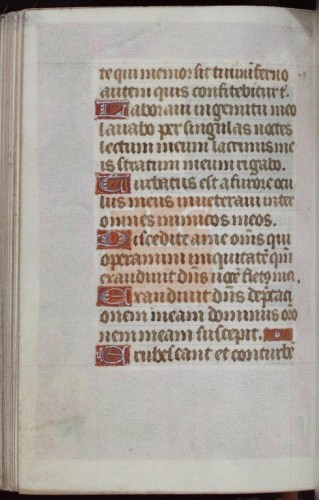 te qui memor sit tui in īferno
autem quis confitebitur t̄.
Laboraui in gemitu meo
lauabo per singulas noctes
lectum meum lacrimis me
is stratum meum rigabo.
Turbatus est a furore ocu
lus meus inueteraui inter
omnes inimicos meos.
Discedite a me om̄s qui
operamini iniquitatē qm̄
exaudiuit dn̄s uocē fletꝰ mei.
Exaudiuit dn̄s dep̄caci
onem meam dominus oro
nem meam suscepit.
Erubescant et conturbē